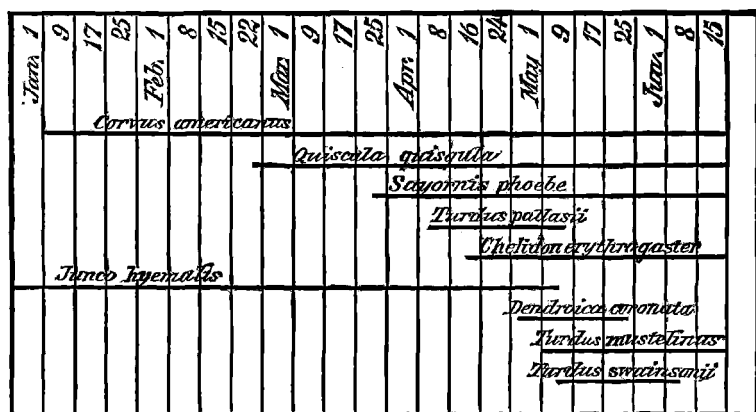 Jan. 1 9 17 25 Feb. 1 8 15 22 Mar. 1 9 17 25 Apr. 1 8 16 24 May 1 9 17 25 Jun. 1 8 15
Corvus americanus
Quiscala quisqula
Sayornis phoebe
Turdus pallasii
Chelidon erythrogaster
Junco hyemalis
Dendroica coronata
Turdus mustelinus
Turdus swainsonii